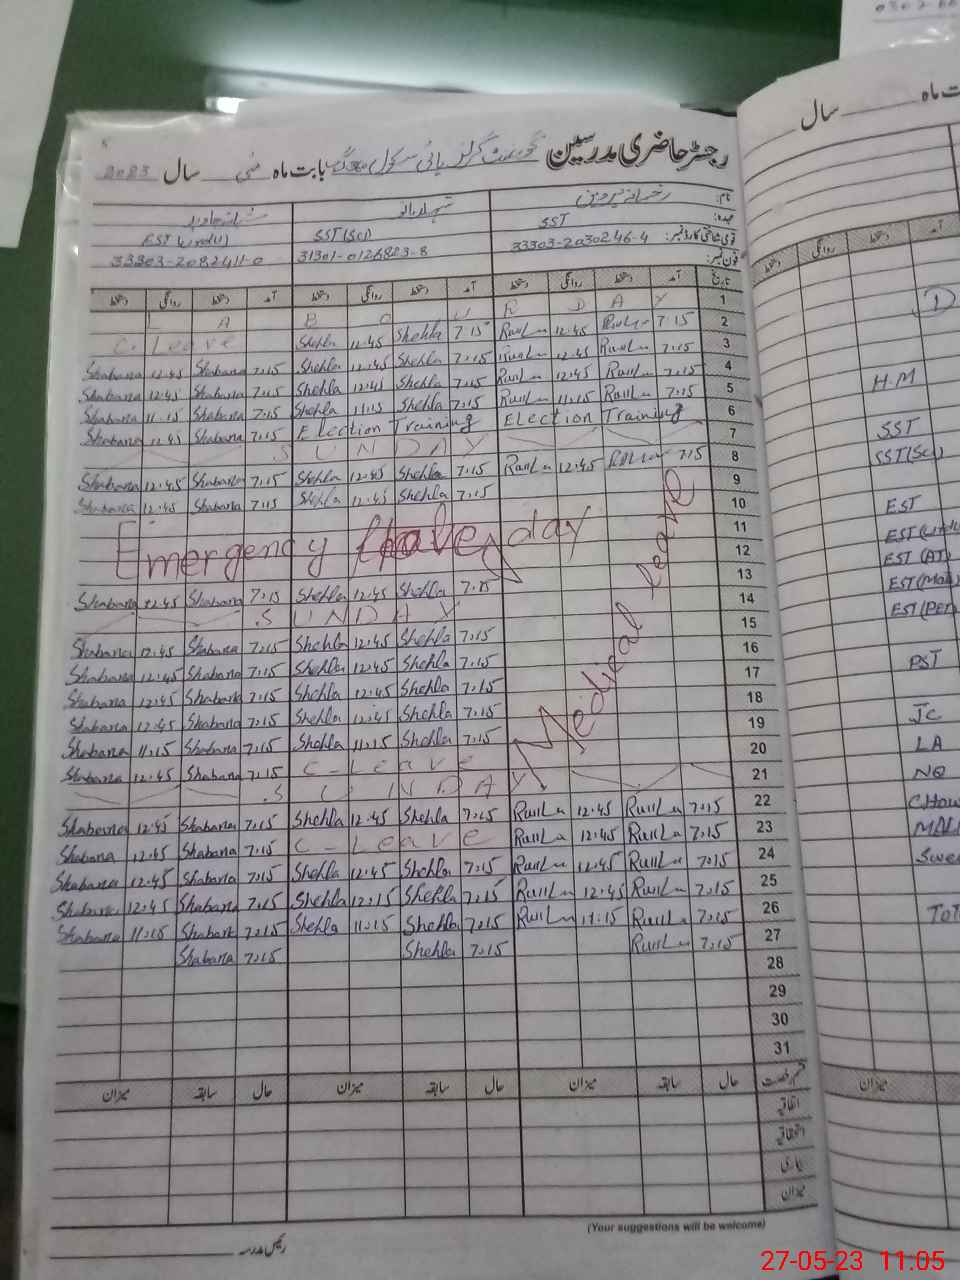 رجسٹر حاضری مدرسین گورنمنٹ گرلز ہائی سکول بابت ماہ مئی سال 2023
نام: رخسانہ پروین شہلا بانو شبانہ جاوید
عہدہ: SST SST(Sci) EST(Urdu)
قومی شناختی کارڈ نمبر: 33303-2030246-4 31301-0126823-8 33303-2082411-0
فون نمبر:
تاریخ آمد دستخط روانگی دستخط آمد دستخط روانگی دستخط آمد دستخط روانگی دستخط
L A B O U R D A Y 1
C. Leave Shehla 12.45 Shehla 7.15 12.45 7.15 2
Shabana 12.45 Shabana 7.15 Shehla 12.45 Shehla 7.15 12.45 7.15 3
Shabana 12.45 Shabana 7.15 Shehla 12.45 Shehla 7.15 12.45 7.15 4
Shabana 11.15 Shabana 7.15 Shehla 11.15 Shehla 7.15 11.15 7.15 5
Shabana 12.45 Shabana 7.15 Election Training Election Training 6
S U N D A Y 7
Shabana 12.45 Shabana 7.15 Shehla 12.45 Shehla 7.15 12.45 7.15 8
Shabana 12.45 Shabana 7.15 Shehla 12.45 Shehla 7.15 9
10
Emergency day 11
12
Shabana 12.45 Shabana 7.15 Shehla 12.45 Shehla 7.15 13
S U N D A Y 14
Shabana 12.45 Shabana 7.15 Shehla 12.45 Shehla 7.15 15
Shabana 12.45 Shabana 7.15 Shehla 12.45 Shehla 7.15 16
Shabana 12.45 Shabana 7.15 Shehla 12.45 Shehla 7.15 17
Shabana 12.45 Shabana 7.15 Shehla 12.45 Shehla 7.15 18
Shabana 11.15 Shabana 7.15 Shehla 11.15 Shehla 7.15 19
Shabana 12.45 Shabana 7.15 C-Leave 20
Medical Leave
S U N D A Y 21
Shabana 12.45 Shabana 7.15 Shehla 12.45 Shehla 7.15 12.45 7.15 22
Shabana 12.45 Shabana 7.15 C-Leave 12.45 7.15 23
Shabana 12.45 Shabana 7.15 Shehla 12.45 Shehla 7.15 12.45 7.15 24
Shabana 12.45 Shabana 7.15 Shehla 12.15 Shehla 7.15 12.45 7.15 25
Shabana 11.15 Shabana 7.15 Shehla 11.15 Shehla 7.15 11.15 7.15 26
Shabana 7.15 Shehla 7.15 7.15 27
28
29
30
31
قسم رخصت حال سابقہ میزان حال سابقہ میزان حال سابقہ میزان
اتفاقیہ
استحقاقیہ
بیماری
میزان
(Your suggestions will be welcome)
رئیس مدرسہ
سال
ماہ
آمد دستخط روانگی دستخط
H.M
SST
SST(Sci)
EST
EST(Urdu)
EST(AT)
PST
JC
LA
NQ
میزان
27-05-23 11.05